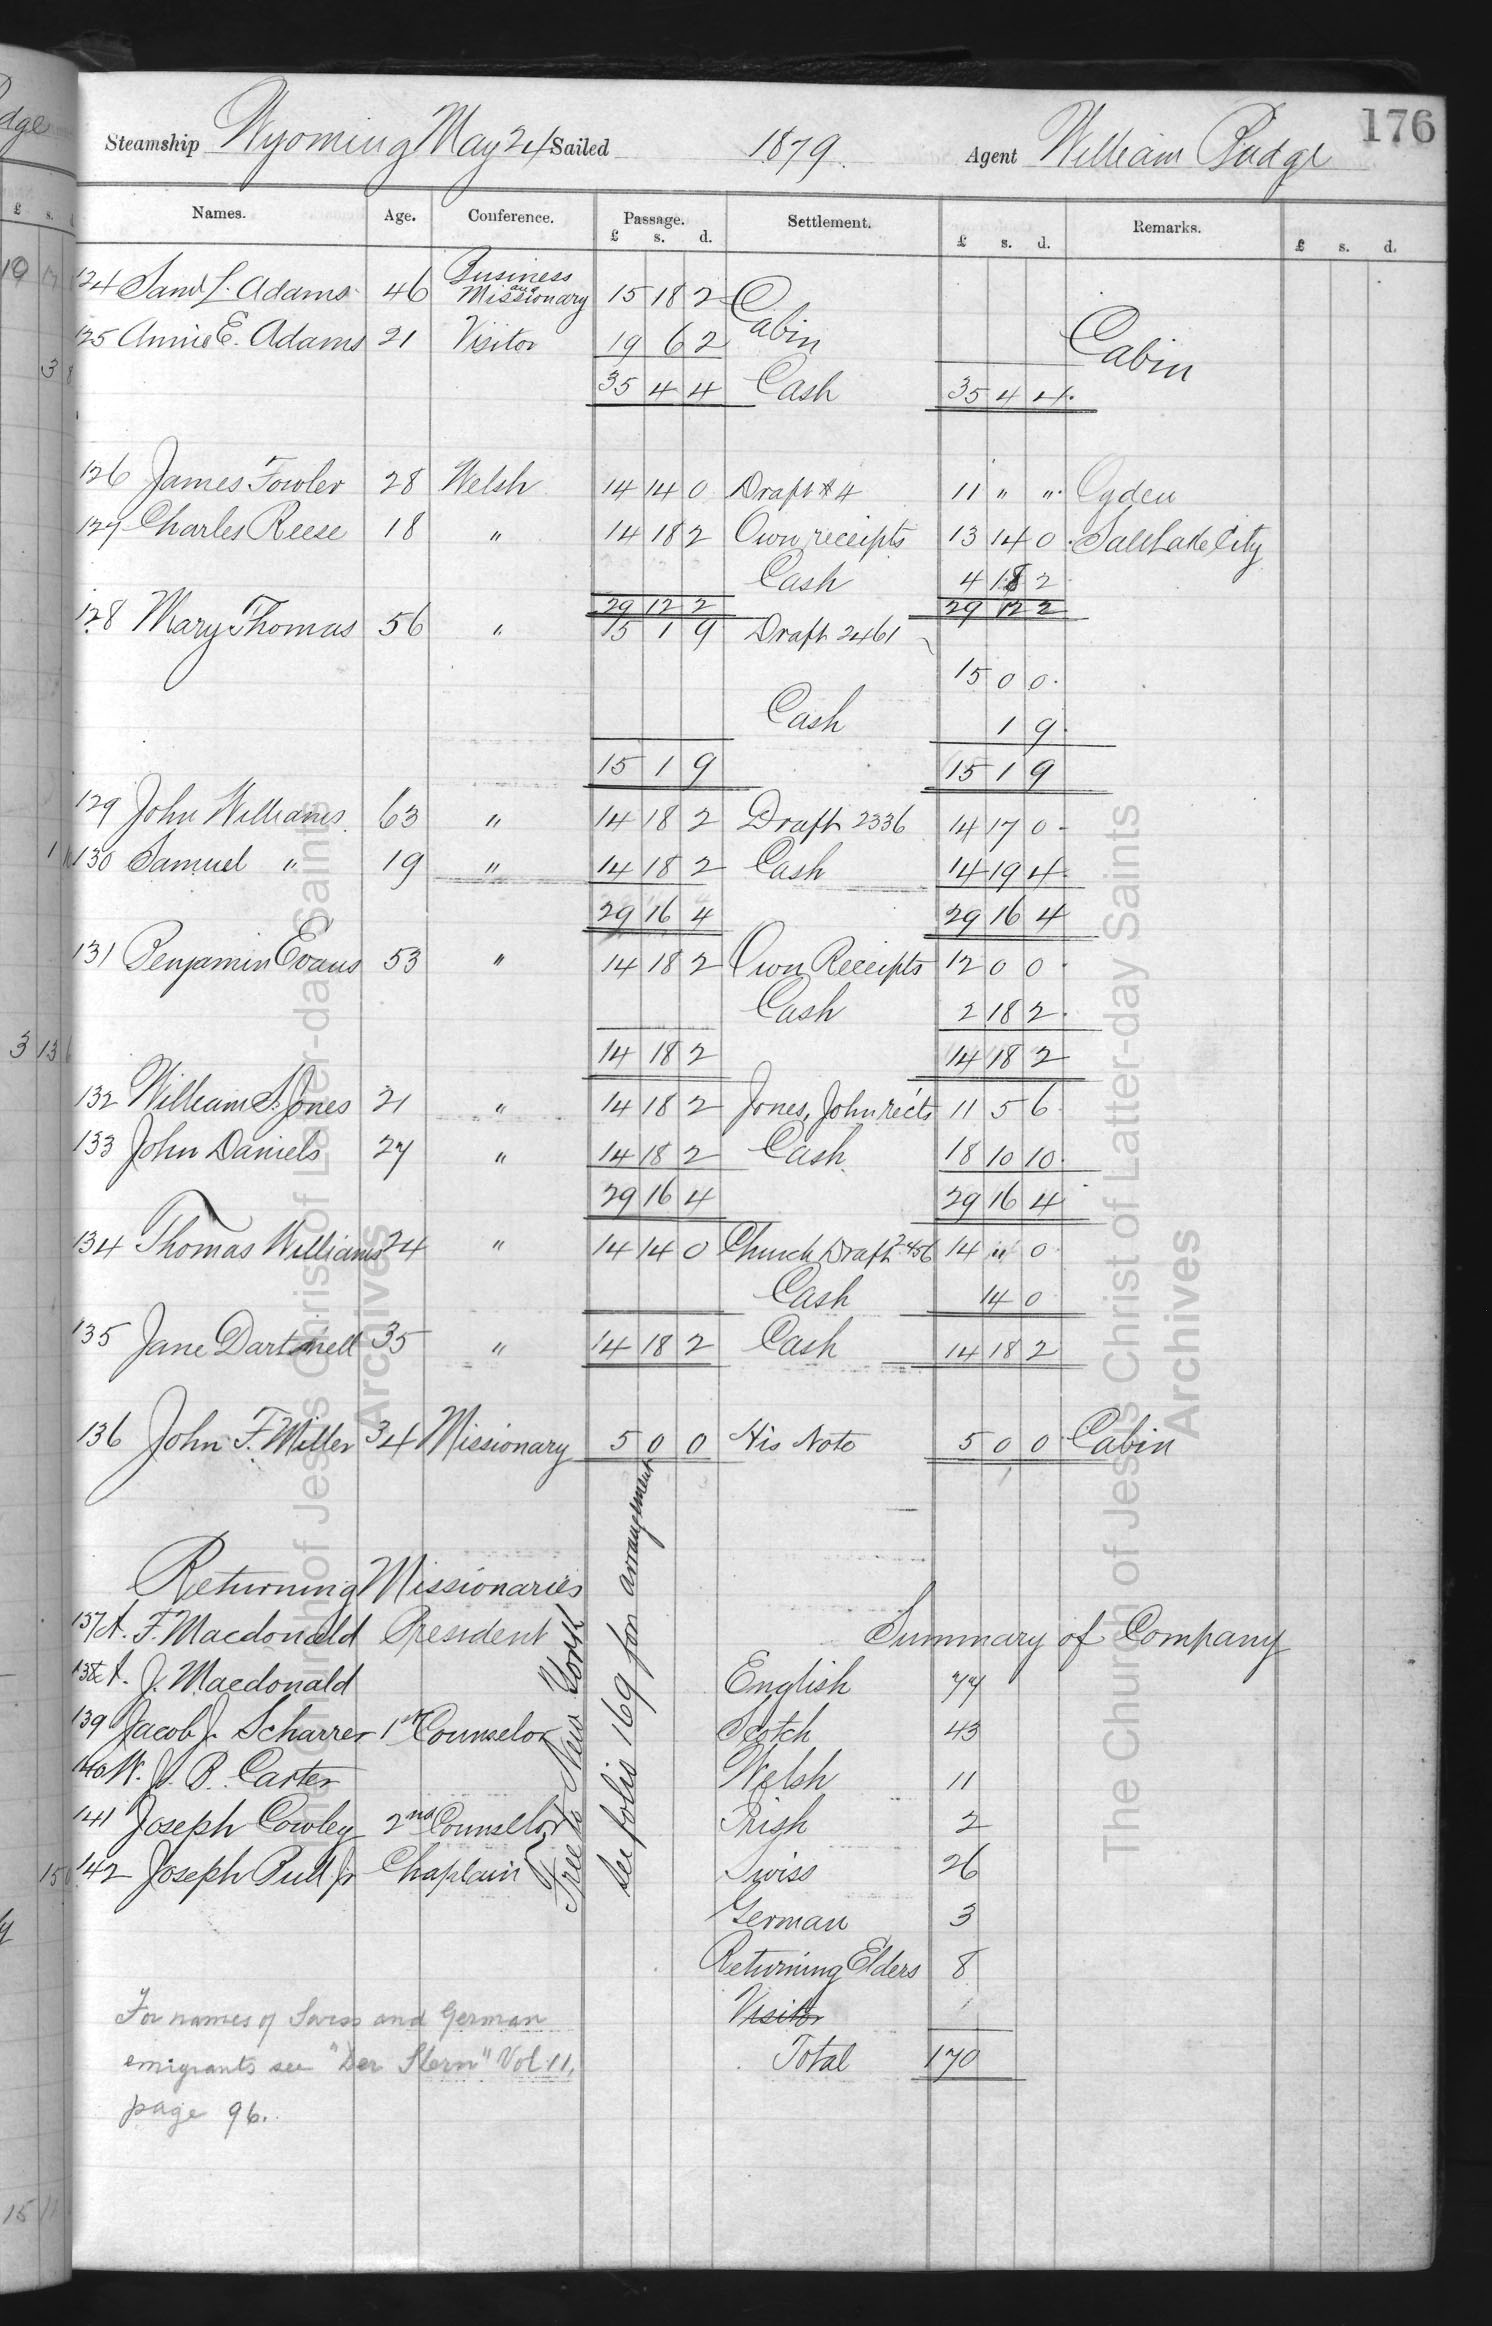 176
Steamship Wyoming May 24 Sailed 1879. Agent William Budge
Names. Age. Conference. Passage. Settlement. Remarks.
£ s. d. £ s. d. £ s. d.
124 Saml L. Adams 46 Business and Missionary 15 18 2 Cabin
125 Annie E. Adams 21 Visitor 19 6 2 Cabin
35 4 4 Cash 35 4 4
126 James Fowler 28 Welsh 14 14 0 Draft # 4 11 " " Ogden
127 Charles Reese 18 " 14 18 2 Own receipts 13 14 0 Salt Lake City
Cash 4 18 2
29 12 2 29 12 2
128 Mary Thomas 56 " 15 1 9 Draft 2461
15 0 0
Cash 1 9
15 1 9 15 1 9
129 John Williams 63 " 14 18 2 Draft 2336 14 17 0
130 Samuel " 19 " 14 18 2 Cash 14 19 4
29 16 4 29 16 4
131 Benjamin Evans 53 " 14 18 2 Own Receipts 12 0 0
Cash 2 18 2
14 18 2 14 18 2
132 William S. Jones 21 " 14 18 2 Jones, John rects 11 5 6
133 John Daniels 27 " 14 18 2 Cash 18 10 10
29 16 4 29 16 4
134 Thomas Williams 24 " 14 14 0 Church Draft 2456 14 " 0
Cash 14 0
135 Jane Dartnell 35 " 14 18 2 Cash 14 18 2
136 John F. Miller 34 Missionary 5 0 0 His Note 5 0 0 Cabin
Returning Missionaries
137 A. F. Macdonald President
138 A. J. Macdonald
139 Jacob J. Scharrer 1st Counselor
140 W. J. B. Carter
141 Joseph Cowley 2nd Counselor
142 Joseph Bull Jr Chaplain
Free to New York
See folio 169 for arrangement
Summary of Company
English 77
Scotch 43
Welsh 11
Irish 2
Swiss 26
German 3
Returning Elders 8
Visitor
Total 170
For names of Swiss and German
emigrants see "Der Stern" Vol 11,
page 96.
The Church of Jesus Christ of Latter-day Saints
Archives
The Church of Jesus Christ of Latter-day Saints
Archives